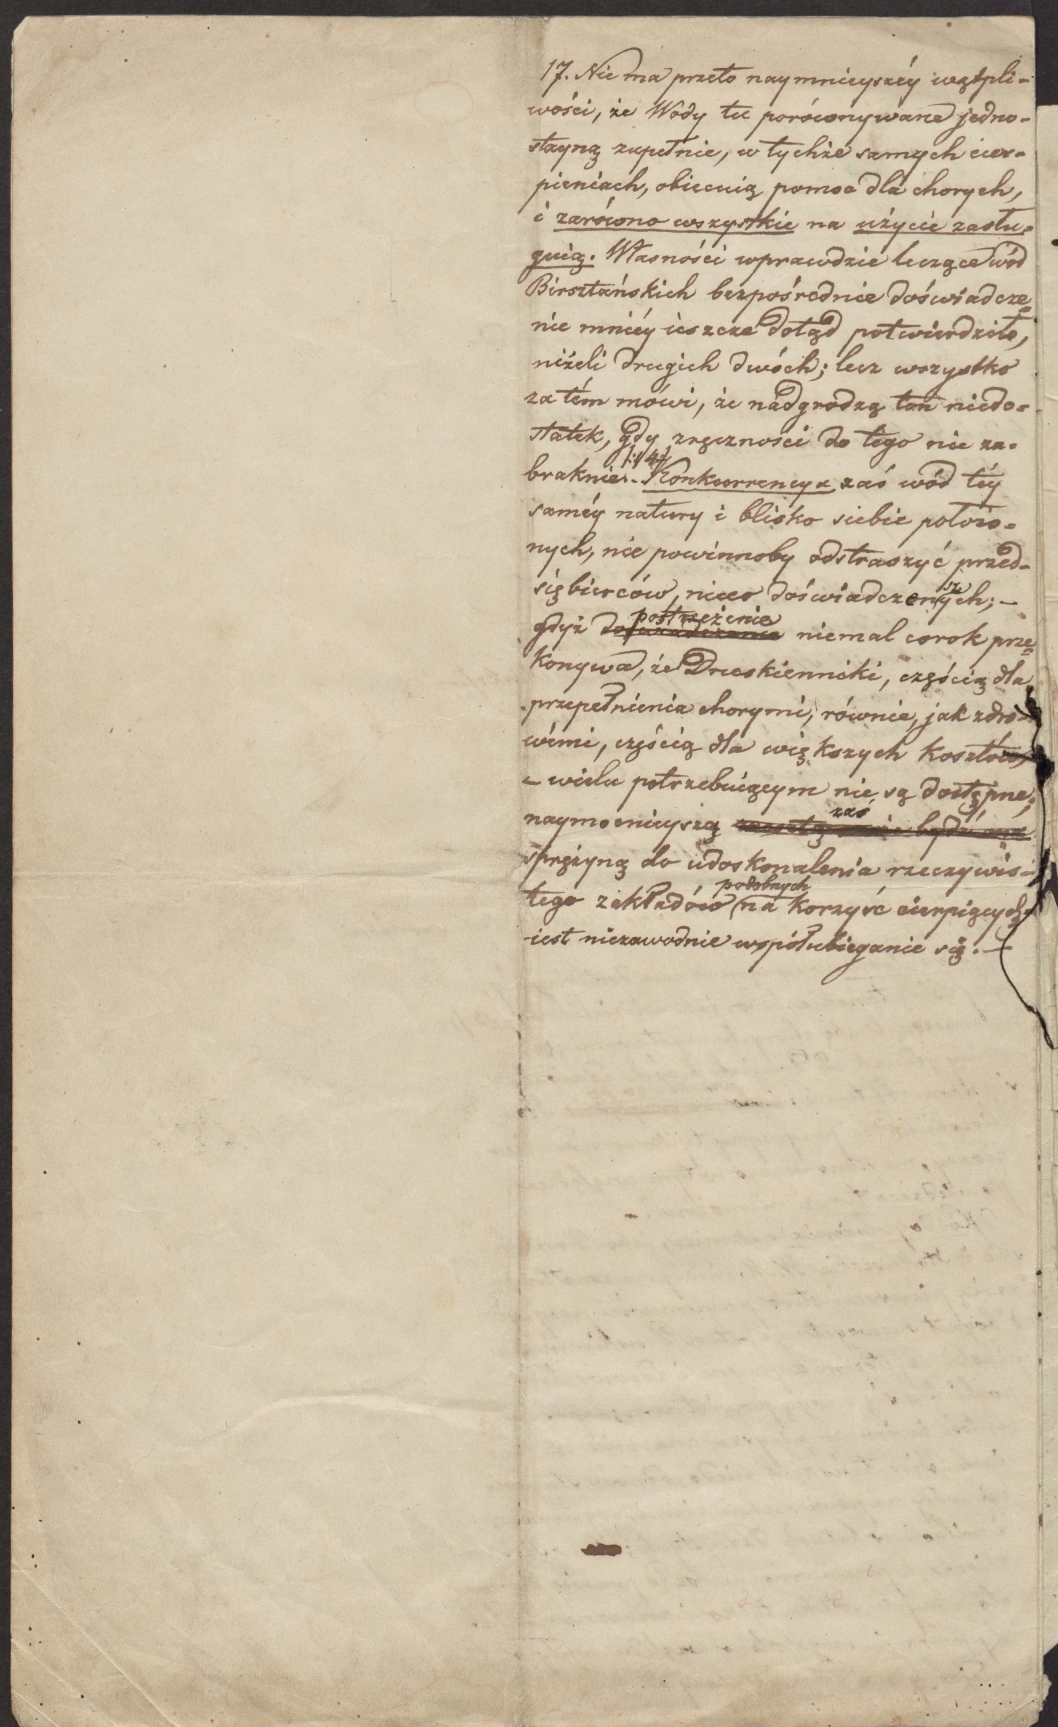 17. Nie ma przeto naymnieyszéy wątpli-
wości, że Wody tu porównywane jedno-
stayną zupełnie, w tychże samych cier-
pieniach, obiecuią pomoc dla chorych,
i zarówno wszystkie na użycie zasłu-
guią. Własności wprawdzie leczące wód
Birsztańskich bezpośrednie doświadcze-
nie mniéy ieszcze dotąd potwierdziło,
niżeli drugich dwóch; lecz wszystko
za tém mówi, że nadgrodzą ten niedo-
statek, gdy zręczności do tego nie za-
braknie. Konkurrencya zaś wód téy
saméy natury i blisko siebie położo-
nych, nie powinnoby odstraszyć przed-
siębierców, nieco doświadczeńszych; –
postrzeżenie
gdyż doświadczenie niemal corok prze-
konywa, że Druskienniki, częścią dla
przepełnienia chorymi, równie, jak zdro-
wémi, częścią dla większych kosztów,
– wielu potrzebuiącym nie są dostępne;
zaś
naymocnieyszą będzie
sprężyną do udoskonalenia rzeczywis-
podobnych
tego zakładów na korzyść cierpiących
iest niezawodnie współubieganie się. –